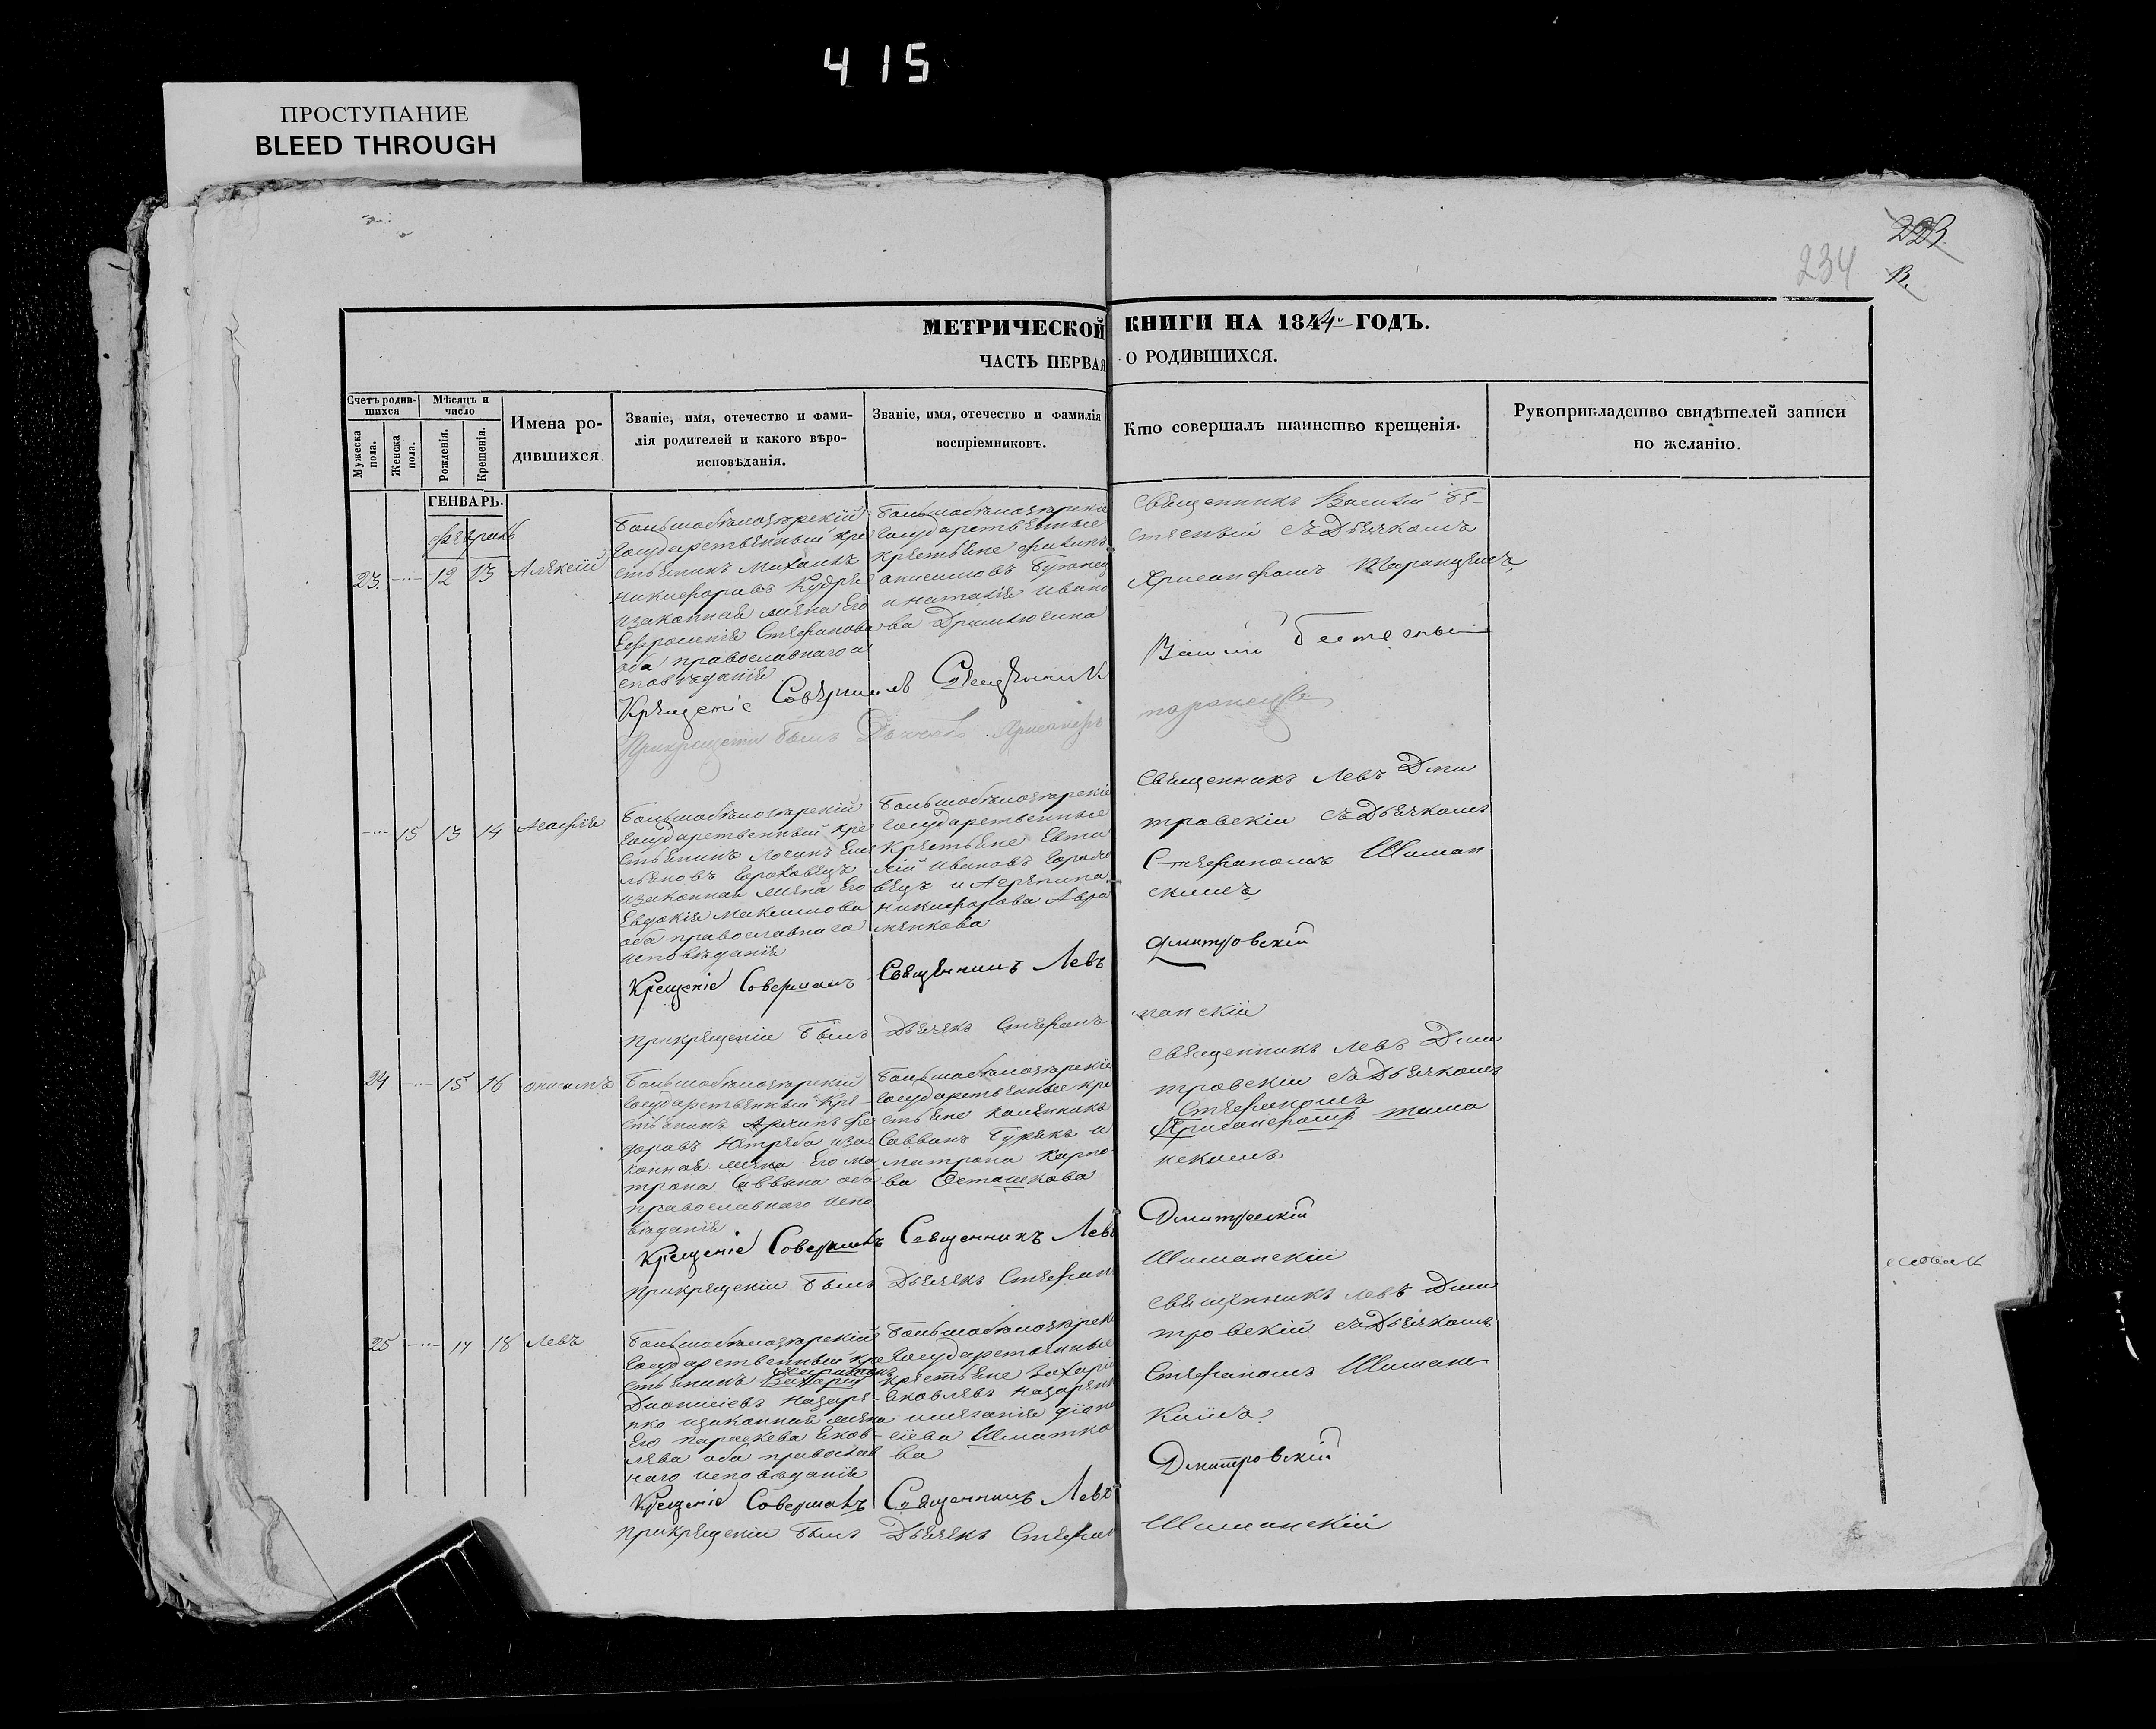 415
ПРОСТУПАНИЕ
BLEED THROUGH
223.
234
МЕТРИЧЕСКОЙ КНИГИ НА 1844 ГОДЪ.
ЧАСТЬ ПЕРВАЯ О РОДИВШИХСЯ.
Счетъ родив-
шихся
Мужеска пола.
Женска пола.
Мѣсяцъ и
число
Рожденія.
Крещенія.
Имена ро-
дившихся.
Званіе, имя, отечество и фами-
лія родителей и какого вѣро-
исповѣданія.
Званіе, имя, отечество и фамилія
воспріемниковъ.
Кто совершалъ таинство крещенія.
Рукоприкладство свидѣтелей записи
по желанію.
ГЕНВАРЬ.
февраль
23. 12 13 Алексій
Большобѣлозѣрскій
государственный кре
стьянинъ Михаилъ
Никифоровъ
изаконная жена его
Ефросинія Стефанова
оба православнаго и
сповѣданія
Большобѣлозѣрскіе
государственные
крестьяне Филипъ
Онисимовъ
и Наталія Ивано
ва
Священникъ Василій
съ Дьячкомъ
Крещеніе Совершилъ Священникъ
При крещеніи былъ
15 13 14 Агафія
Большобѣлозѣрскій
государственный кре
стьянинъ Логинъ Еме
льяновъ
изаконная жена его
Евдокія Максимова
оба православнаго
исповѣданія
Большобѣлозѣрскіе
государственные
крестьяне Евти
хій Ивановъ
и Агрепина
Никифорова
Священникъ Левъ Дми
тровскій съ Дьячкомъ
Стефаномъ Шиман
скимъ
Крещеніе Совершалъ Священникъ Левъ Дмитровскій
При крещеніи былъ Дьячекъ Стефанъ манскій
24 15 16 Онисимъ
Большобѣлозѣрскій
государственный кре
стьянинъ Архипъ Фе
доровъ изa
конная жена его Ма
трона Саввина оба
православнаго испо
вѣданія
Большобѣлозѣрскіе
государственные кре
стьяне Калиникъ
Саввинъ и
Матрона Карпо
ва Осташкова
Священникъ Левъ Дми
тровскій съ Дьячкомъ
Стефаномъ
нскимъ
Крещеніе Совершалъ Священникъ Левъ Дмитровскій
При крещеніи былъ Дьячекъ Стефанъ Шиманскій
25 17 18 Левъ
Большобѣлозѣрскій
государственный кре
стьянинъ Захарій
Діонисіевъ Назаре
нко изаконная жена
его Параскева Яков
лева оба православ
наго исповѣданія
Большобѣлозѣрскіе
государственные
крестьяне Захарій
Яковлевъ Назаренк
и Меланія
сіева Шматко
ва
Священникъ Левъ Дми
тровскій съ Дьячкомъ
Стефаномъ Шиманс
кимъ
Крещеніе Совершалъ Священникъ Левъ Дмитровскій
При крещеніи былъ Дьячекъ Стефанъ Шиманскій